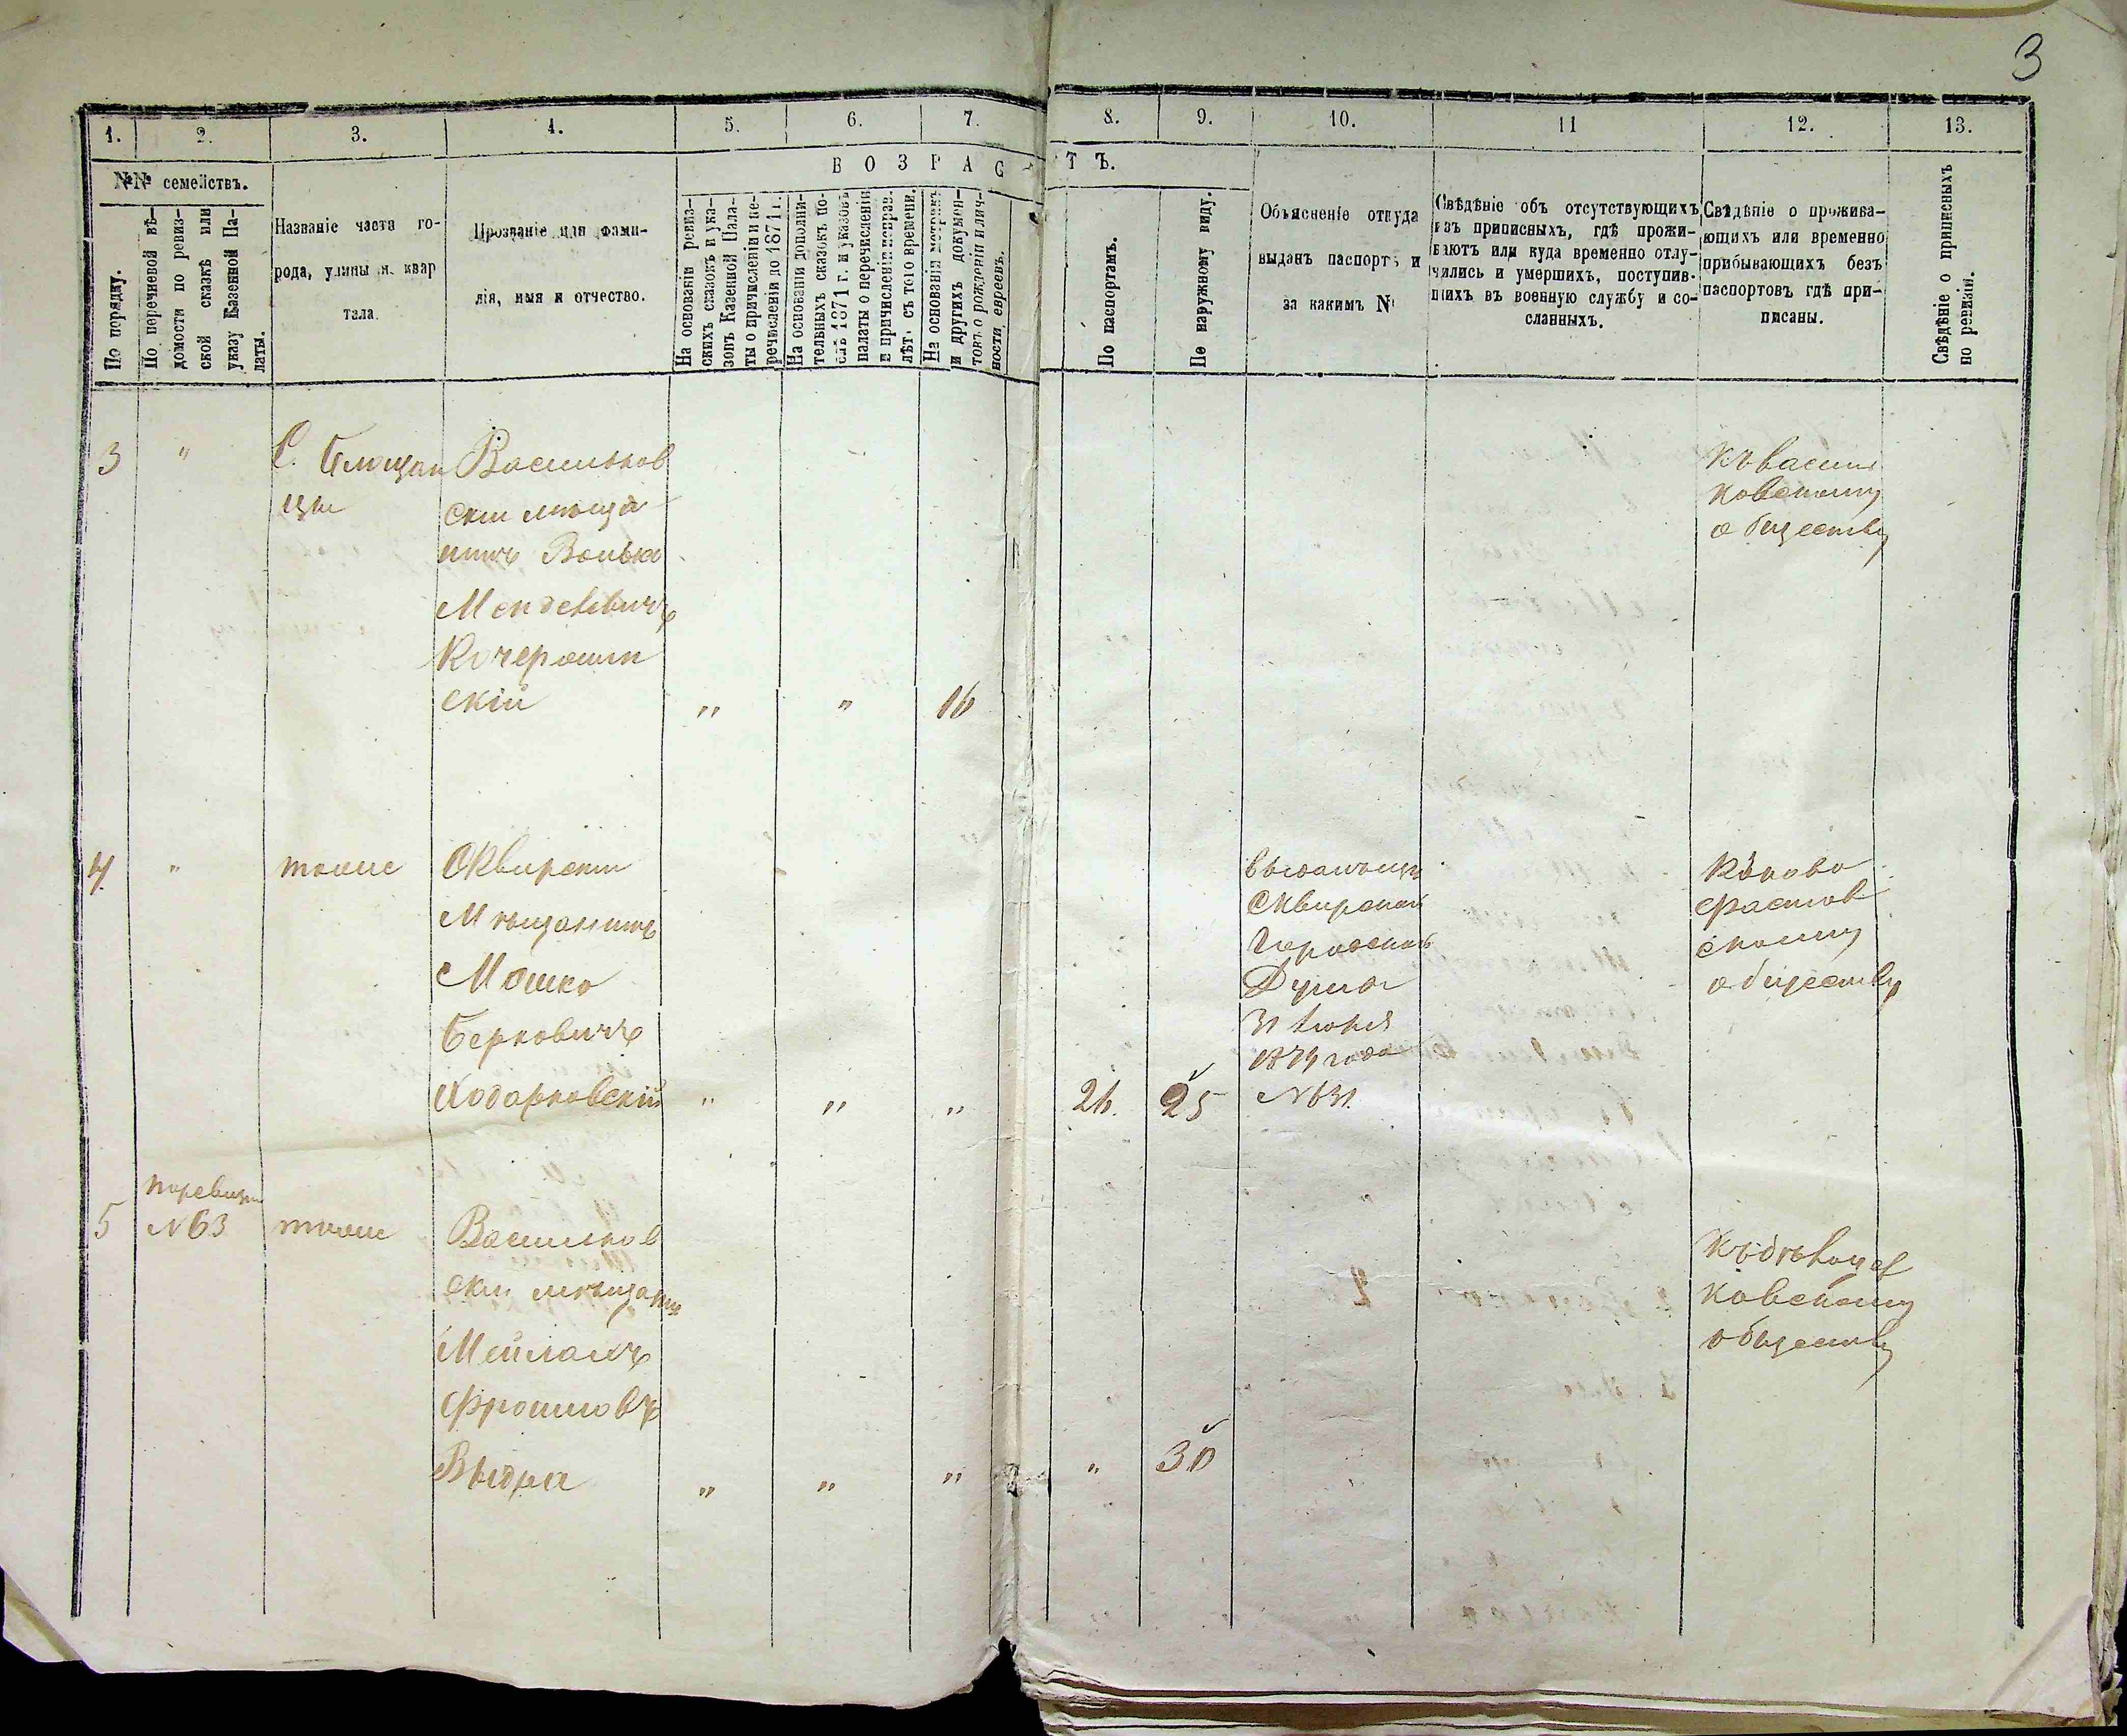 3
1. 2. 3. 4. 5. 6. 7. 8. 9. 10. 11 12. 13.
№№ семействъ.
По порядку.
По перечневой вѣ-
домости по ревиз-
ской сказкѣ или
указу Казенной Па-
латы.
Названіе части го-
рода, улицы и квар
тала.
Прозваніе или фами-
лія, имя и отчество.
ВОЗРАСТЪ.
На основаніи ревиз-
скихъ сказокъ и ука-
зовъ Казенной Пала-
ты о причисленіи и пе-
речисленіи до 1871 г.
На основаніи дополни-
тельныхъ сказокъ по-
слѣ 1871 г. и указовъ
палаты о перечисленіи
и причисленіи
лѣт. съ того времени.
На основаніи метрикъ
и другихъ докумен-
товъ о рожденіи и лич-
ности евреевъ.
По паспортамъ.
По наружному виду.
Объясненіе откуда
выданъ паспортъ и
за какимъ №
Свѣдѣніе объ отсутствующихъ
изъ приписныхъ, гдѣ прожи-
ваютъ или куда временно отлу-
чились и умершихъ, поступив-
шихъ въ военную службу и со-
сланныхъ.
Свѣдѣніе о прожива-
ющихъ или временно
прибывающихъ безъ
паспортовъ гдѣ при-
писаны.
Свѣдѣніе о приписныхъ
по ревизіи.
3 " С.
цы
Васильков
ски мѣща
нинъ Волько
Менделевичъ
Кочерошин
скій " " 16
Къ василь
ковскому
обществу
4 " тоже Сквирски
Мѣщанинъ
Мошко
Берковичъ
Ходорковскій " " " 26. 25
Сквирской
Городской
Думой
31 Іюля
1874 года
№ 631.
фастов
скому
обществу
5 по ревизіи
№ 63 тоже Васильков
ски мѣщанинъ
Мейлахъ
Фроимовъ
Выдра " " " " 30
ковскому
обществу